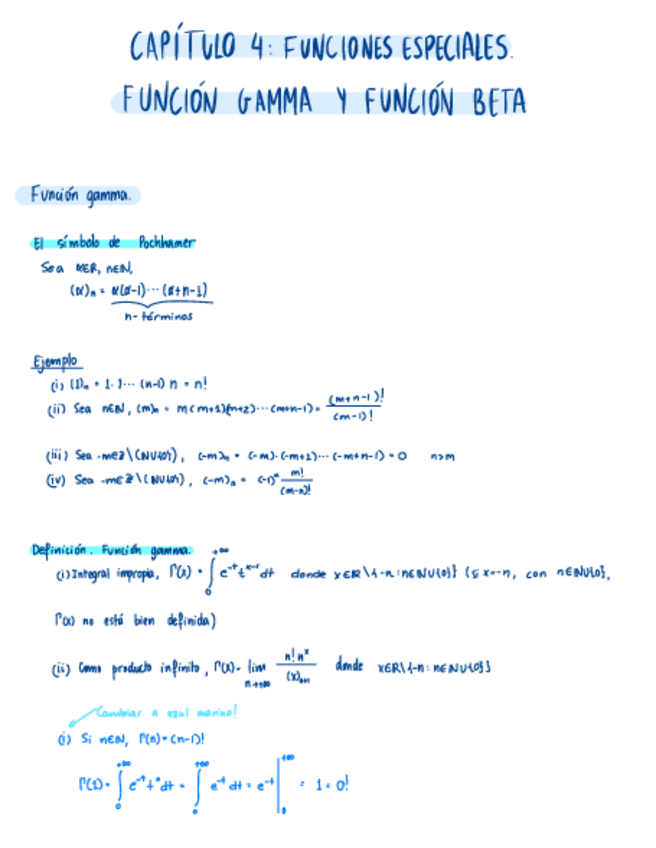 CAPÍTULO 4: FUNCIONES ESPECIALES.
FUNCIÓN GAMMA Y FUNCIÓN BETA
Función gamma.
El símbolo de Pochhamer
Sea α∈R, n∈N,
(α)ₙ = α(α-1)··· (α+n-1)
n- términos
Ejemplo
(i) (1)ₙ = 1· 1··· (n-1) n = n!
(ii) Sea n∈N, (m)ₙ = m(m+1)(m+2)···(m+n-1) = (m+n-1)! / (m-1)!
(iii) Sea -m∈Z\(NU{0}), (-m)ₙ = (-m)·(-m+1)··· (-m+n-1) = 0 n>m
(iv) Sea -m∈Z\(NU{0}), (-m)ₙ = (-1)ⁿ m! / (m-n)!
Definición. Función gamma.
(i) Integral impropia, Γ(x) = ∫₀^{+∞} e^{-t} t^{x-1} dt donde x∈R\{-n:n∈NU{0}} (si x=-n, con n∈NU{0},
Γ(x) no está bien definida)
(ii) Como producto infinito, Γ(x) = lim_{n→+∞} n! nˣ / (x)ₙ₊₁ donde x∈R\{-n: n∈NU{0}}
Cambiar a azul marino!
(i) Si n∈N, Γ(n) = (n-1)!
Γ(1) = ∫₀^{+∞} e^{-t} t⁰ dt = ∫₀^{+∞} e^{-t} dt = e^{-t} |₀^{+∞} = 1 = 0!